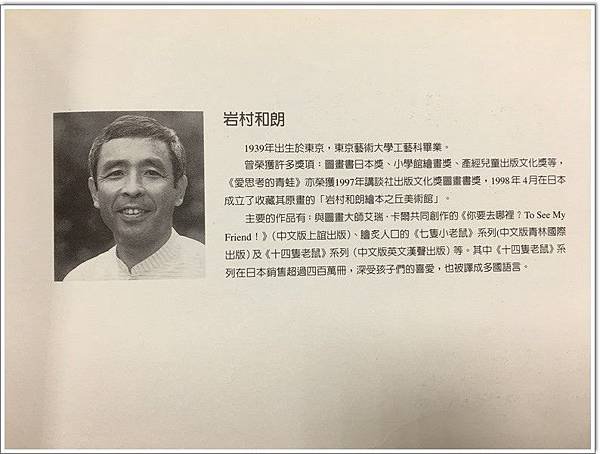 岩村和朗
1939年出生於東京，東京藝術大學工藝科畢業。
曾榮獲許多獎項：圖畫書日本獎、小學館繪畫獎、產經兒童出版文化獎等，
《愛思考的青蛙》亦榮獲1997年講談社出版文化獎圖畫書獎，1998年4月在日本
成立了收藏其原畫的「岩村和朗繪本之丘美術館」。
主要的作品有：與圖畫大師艾瑞．卡爾共同創作的《你要去哪裡？To See My
Friend！》（中文版上誼出版）、膾炙人口的《七隻小老鼠》系列(中文版青林國際
出版）及《十四隻老鼠》系列（中文版英文漢聲出版）等。其中《十四隻老鼠》系
列在日本銷售超過四百萬冊，深受孩子們的喜愛，也被譯成多國語言。